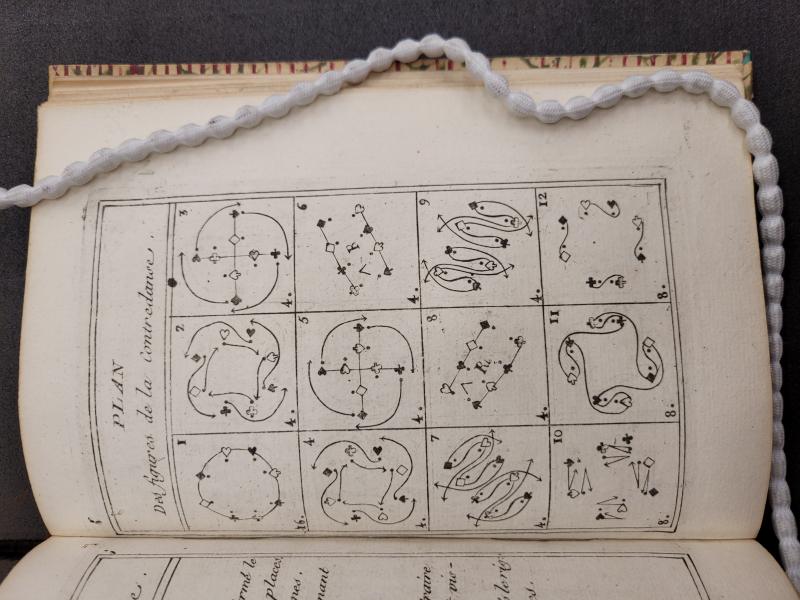 PLAN
Des figures de la Contredanse.
1 2 3
16. 4. 4.
4 5 6
4. 4. 4.
7 8 9
4. 4. 4.
10 11 12
8. 8. 8.
rmé le
places,
nes.
nant